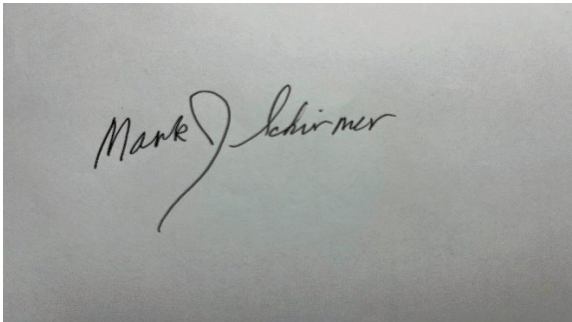 Mark J Schirmer